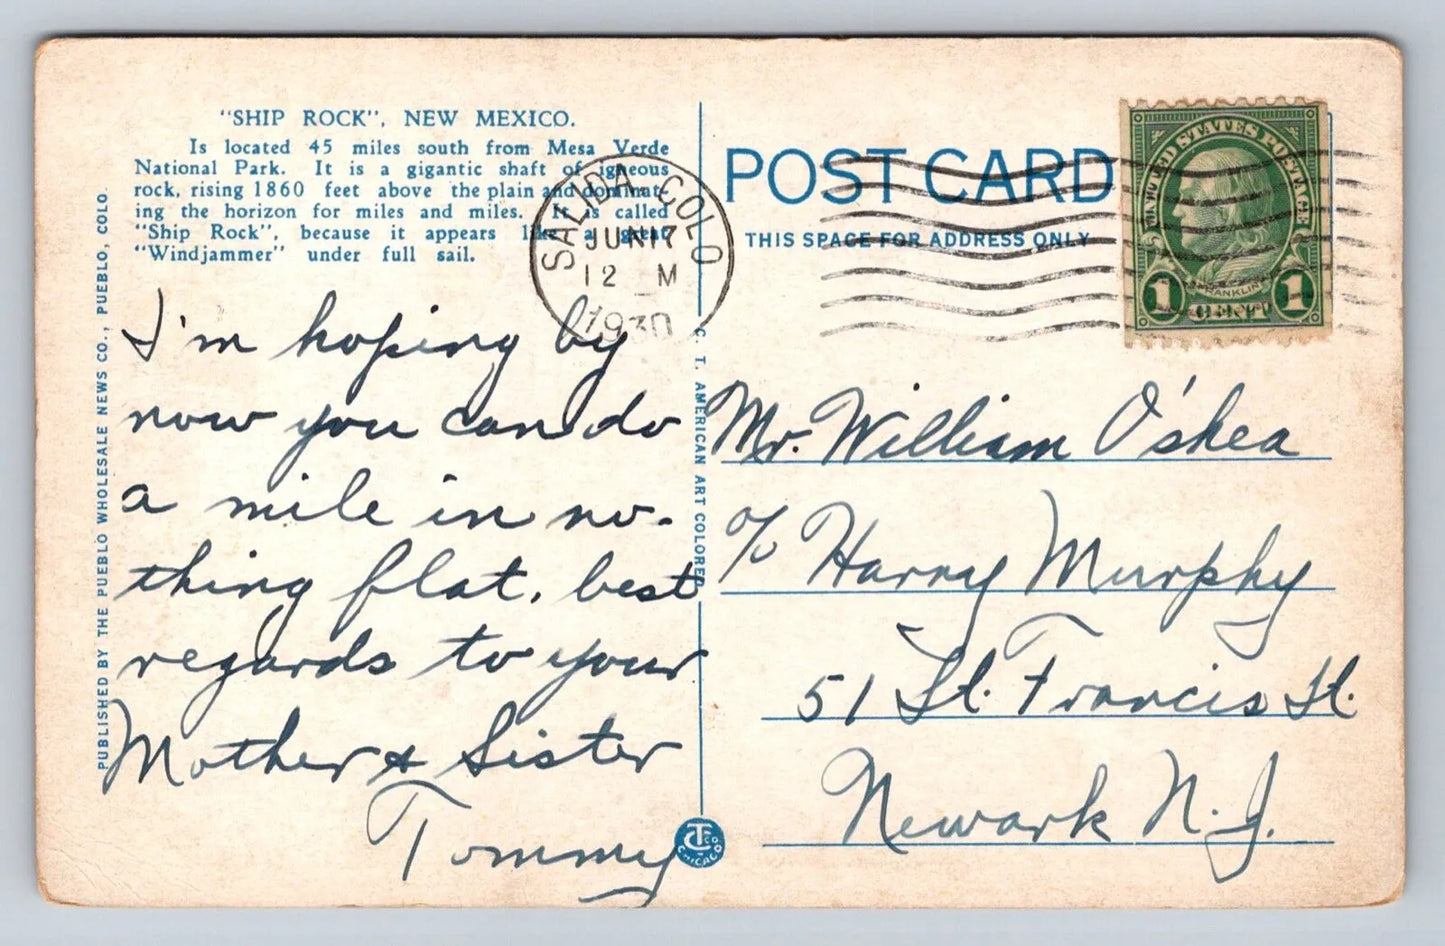 "SHIP ROCK", NEW MEXICO.
Is located 45 miles south from Mesa Verde
National Park. It is a gigantic shaft of igneous
rock, rising 1860 feet above the plain and dominat-
ing the horizon for miles and miles. It is called
"Ship Rock", because it appears like a great
"Windjammer" under full sail.
PUBLISHED BY THE PUEBLO WHOLESALE NEWS CO., PUEBLO, COLO.
I'm hoping by
now you can do
a mile in no-
thing flat, best
regards to your
Mother & Sister
Tommy
SALIDA COLO
JUN 17
12 M
1930
C. T. AMERICAN ART COLORED
CT CO
CHICAGO
POST CARD
THIS SPACE FOR ADDRESS ONLY
UNITED STATES POSTAGE
FRANKLIN
1 CENT 1
Mr. William O'shea
c/o Harry Murphy
51 St. Francis St.
Newark N.J.